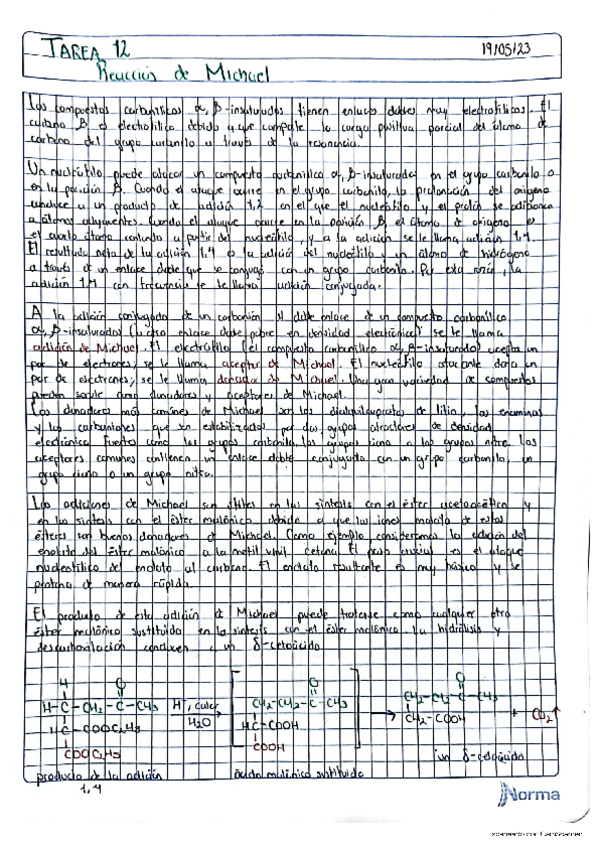 TAREA 12
19/05/23
Reacción de Michael
Los compuestos carbonílicos α, β-insaturados tienen enlaces dobles muy electrofílicos. El
carbono β es electrofílico debido a que comparte la carga positiva parcial del átomo de
carbono del grupo carbonilo a través de la resonancia.
Un nucleófilo puede atacar un compuesto carbonílico α, β-insaturados en el grupo carbonilo o
en la posición β. Cuando el ataque ocurre en el grupo carbonilo, la protonación del oxígeno
conduce a un producto de adición 1,2 en el que el nucleófilo y el protón se adicionan
a átomos adyacentes. Cuando el ataque ocurre en la posición β, el átomo de oxígeno es
el cuarto átomo contando a partir del nucleófilo, y a la adición se le llama adición 1,4.
El resultado neto de la adición 1,4 es la adición del nucleófilo y un átomo de hidrógeno
a través de un enlace doble que se conjuga con un grupo carbonilo. Por esta razón, la
adición 1,4 con frecuencia se le llama adición conjugada.
A la adición conjugada de un carbanión al doble enlace de un compuesto carbonílico
α, β-insaturados (u otro enlace doble pobre en densidad electrónica) se le llama
adición de Michael. El electrófilo (el compuesto carbonílico α, β-insaturado) acepta un
par de electrones; se le llama aceptor de Michael. El nucleófilo atacante dona un
par de electrones; se le llama donador de Michael. Una gran variedad de compuestos
pueden servir como donadores y aceptores de Michael.
Los donadores más comúnes de Michael son los dialquilcupratos de litio, las enaminas
y los carbaniones que son estabilizados por dos grupos atractores de densidad
electrónica fuertes como los grupos carbonilo, los grupos ciano o los grupos nitro. Los
aceptores comunes contienen un enlace doble conjugado con un grupo carbonilo, un
grupo ciano o un grupo nitro.
Las adiciones de Michael son útiles en las síntesis con el éster acetoacético y
en las síntesis con el éster malónico debido a que los iones enolato de estos
ésteres son buenos donadores de Michael. Como ejemplo, consideremos la adición del
enolato del éster malónico a la metil vinil cetona. El paso crucial es el ataque
nucleofílico del enolato al carbono. El enolato resultante es muy básico y se
protona de manera rápida.
El producto de esta adición de Michael puede tratarse como cualquier otro
éster malónico sustituido en la síntesis con el éster malónico. La hidrólisis y
descarboxilación conducen a un δ-cetoácido
H O O O
H-C-CH2-C-CH3 H+, calor CH2-CH2-C-CH3 CH2-CH2-C-CH3
H-C-COOC2H5 H2O HC-COOH → CH2-COOH + CO2↑
COOC2H5 COOH un δ-cetoácido
producto de la adición ácido malónico sustituido
1,4
Norma
Escaneado con CamScanner